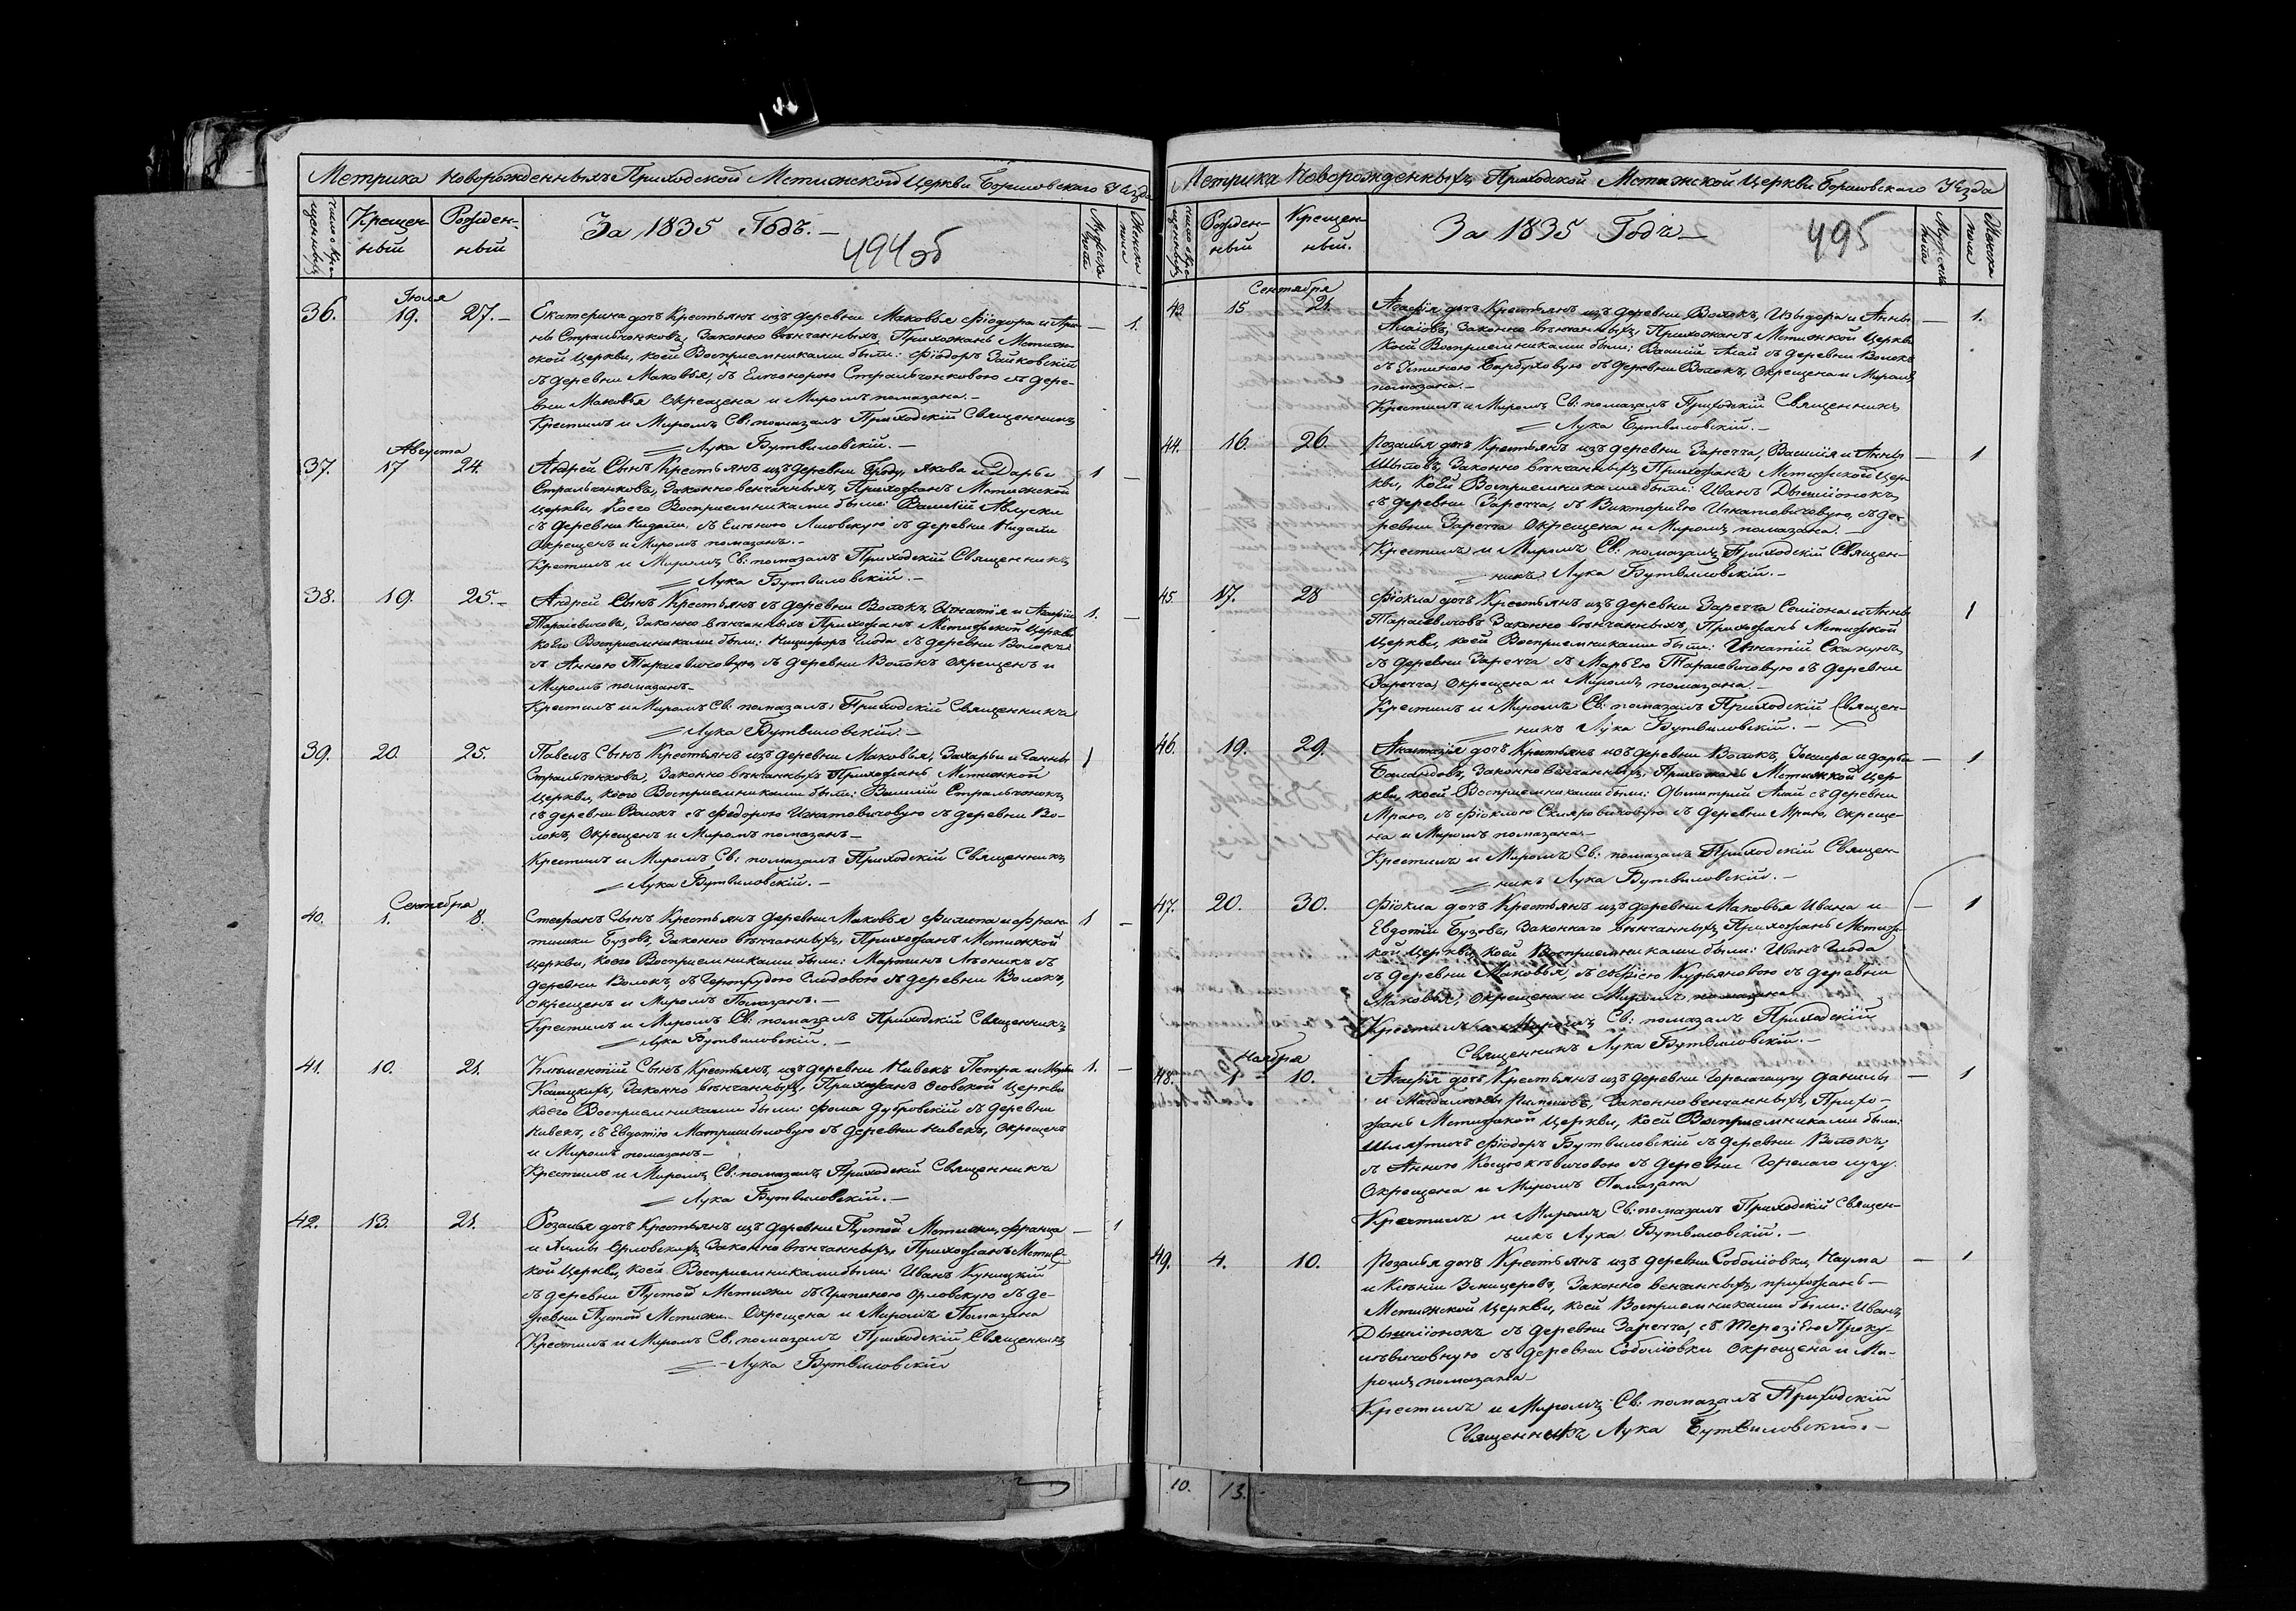 Метрика Новорожденныхъ Приходской Мстижской Церкви Борисовскаго Уѣзда
число кре-
щенныхъ
Крещен-
ный
Рожден-
ный
За 1835 Годъ.–
494 об
Мужеска
пола
Женска
пола
Іюля
36. 19. 27.– Екатерина дочь Крестьянъ изъ деревни Маковья Фіодора и Ан-
ны Стральчонковъ, Законно вѣнчанныхъ, Прихожанъ Мстиж-
ской Церкви, коей Восприемниками были: Фіодоръ Зайковскій
съ деревни Маковья, съ Елеонорою Стральчонковою съ дере-
вни Маковья окрещена и Миромъ помазана.– – 1.
Крестилъ и Миромъ Св: помазалъ Приходскій Священникъ
Лука Бутвиловскій.–
Августа
37. 17 24. Андрей Сынъ Крестьянъ изъ деревни Броду, Якова и Дарьи
Стральчонковъ, Законно венчанныхъ, Прихожанъ Мстижской
Церкви, Коего Восприемниками были: Василій Авлуски
съ деревни Нидали, съ Еленою Лисовскую съ деревни Нидали
Окрещенъ и Миромъ помазанъ.– 1 –
Крестилъ и Миромъ Св: помазалъ Приходскій Священникъ
Лука Бутвиловскій.–
38. 19. 25.– Андрей Сынъ Крестьянъ съ деревни Волокъ, Игнатія и Агафіи
Тарасевичовъ, Законно вѣнчанныхъ Прихожанъ Мстижской Церкви
коего Восприемниками были: Ницыфоръ Глода съ деревни Волокъ
съ Анною Тарасевичовую, съ деревни Волокъ окрещенъ и
Миромъ помазанъ– 1. –
Крестилъ и Миромъ Св: помазалъ, Приходскій Священникъ
Лука Бутвиловскій.–
39. 20. 25. Павелъ Сынъ Крестьянъ изъ деревни Маковья, Захарьи и Ганны
Стральчонкова, Законно вѣнчанныхъ Прихожанъ Мстижской
Церкви, коего Восприемниками были: Василій Стральчонокъ
съ деревни Волокъ съ Федорою Игнатовичовую съ деревни Во-
локъ, Окрещенъ и Миромъ помазанъ– 1
Крестилъ и Миромъ Св: помазалъ Приходскій Священникъ
Лука Бутвиловскій.–
Сентября
40. 1. 8. Стефанъ Сынъ Крестьянъ деревни Маковья Филипа и Фран-
тишки Бузовъ, Законно вѣнчанныхъ, Прихожанъ Мстижкой
Церкви, коего Восприемниками были: Мартинъ съ
деревни Волокъ, съ Гертрудою Глодовою съ деревни Волокъ,
окрещенъ и Миромъ Помазанъ.– 1 –
Крестилъ и Миромъ Св: помазалъ Приходскій Священникъ
Лука Бутвиловскій.–
41. 10. 21. Клементій Сынъ Крестьянъ, изъ деревни Нивекъ Петра и
Законно вѣнчанныхъ, Прихожанъ Осовской Церкви
коего Восприемниками были: Фома Дубровскій съ деревни
Нивекъ, съ Евдотію съ деревни Нивекъ, Окрещенъ
и Миромъ помазанъ– 1. –
Крестилъ и Миромъ Св: помазалъ Приходскій Священникъ
Лука Бутвиловскій.–
42. 13. 21. Розалья дочь Крестьянъ изъ деревни Пустой Мстижи, Франца
и Анны Орловскихъ, Законно вѣнчанныхъ, Прихожанъ Мстиж-
кой Церкви, коей Восприемниками были: Иванъ Куницкій
съ деревни Пустой Мстижи съ Грипиною Орловскую съ де-
ревни Пустой Мстижи. Окрещена и Миромъ Помазана – 1
Крестилъ и Миромъ Св: помазалъ Приходскій Священникъ
Лука Бутвиловскій
Метрика Новорожденныхъ Приходской Мстижской Церкви Борисовскаго Уѣзда
число кре-
щенныхъ
Рожден-
ный
Крещен-
ный.
За 1835 Годъ–
495
Мужеска
пола
Женска
пола
Сентября
43. 15 21. Агафія дочь Крестьянъ изъ деревни Волокъ, Изыдора и Анны
Алаіовъ, Законно вѣнчанныхъ, Прихожанъ Мстижской Церкви
коей Восприемниками были: Василій Алай съ деревни Волокъ
съ Барбуховую съ деревни Волокъ, Окрещена и Миромъ
помазана.– – 1.
Крестилъ и Миромъ Св: помазалъ Приходскій Священникъ
Лука Бутвиловскій.–
44. 16. 26. Розалья дочь Крестьянъ изъ деревни Заречча, Василія и Анны
Шыловъ, Законно вѣнчанныхъ, Прихожанъ Мстижской Цер-
кви, коей Восприемниками были: Иванъ Дышліонокъ
съ деревни Заречча, съ Викторіею Игнатовичовую, съ де-
ревни Заречча Окрещена и Миромъ помазана.– – 1
Крестилъ и Миромъ Св: помазалъ Приходскій Священ-
никъ Лука Бутвиловскій.–
45 17. 28 Фіокла дочь Крестьянъ изъ деревни Заречча Семіона и Анны
Тарасевичовъ Законно вѣнчанныхъ, Прихожанъ Мстижской
Церкви, коей Восприемниками были: Игнатій Скакунъ
съ деревни Заречча съ Марьею Тарасевичовую съ деревни
Заречча, Окрещена и Миромъ помазана.– 1
Крестилъ и Миромъ Св: помазалъ Приходскій Священ-
никъ Лука Бутвиловскій.–
46. 19. 29. Анастазія дочь Крестьянъ изъ деревни Волокъ, и Дарьи
Баландовъ, Законно венчанныхъ, Прихожанъ Мстижкой Цер-
кви, коей Восприемниками были: Дымитрій Алай съ деревни
Мраю, съ Фіоклою съ деревни Мраю, Окреще-
на и Миромъ помазана– – 1
Крестилъ и Миромъ Св: помазалъ Приходскій Священ-
никъ Лука Бутвиловскій.–
47. 20. 30. Фіокла дочь Крестьянъ изъ деревни Маковья Ивана и
Евдотіи Бузовъ, Законнаго вѣнчанныхъ Прихожанъ Мстиж-
кой Церкви, коей Восприемниками были: Иванъ Глода
съ деревни Маковья, съ Курьяновою съ деревни
Маковья, Окрещена и Миромъ помазана – 1
Крестилъ и Миромъ Св: помазалъ Приходскій
Священникъ Лука Бутвиловскій.–
Ноября
48. 1 10. Агафія дочь Крестьянъ изъ деревни Горелагалугу Данилы
и Магдалены Законно венчанныхъ, Прихо-
жанъ Мстижской Церкви, коей Восприемниками были:
Шляхтичъ Фіодоръ Бутвиловскій съ деревни Волокъ,
съ Анною съ деревни Горелаго лугу.
Окрещена и Миромъ Помазана – 1
Крестилъ и Миромъ Св: помазалъ Приходскій Священ-
никъ Лука Бутвиловскій.–
49. 4. 10. Розалья дочь Крестьянъ изъ деревни Соболіовки, Наума
и Ксѣніи Законно венчанныхъ, прихожанъ–
Мстижской Церкви, коей Восприемниками были: Иванъ
Дышліонокъ съ деревни Заречча, съ Терезіею Проку-
левичовную съ деревни Соболіовки Окрещена и Ми-
ромъ помазана– – 1
Крестилъ и Миромъ Св: помазалъ Приходскій
Священникъ Лука Бутвиловскій.–
10. 13.